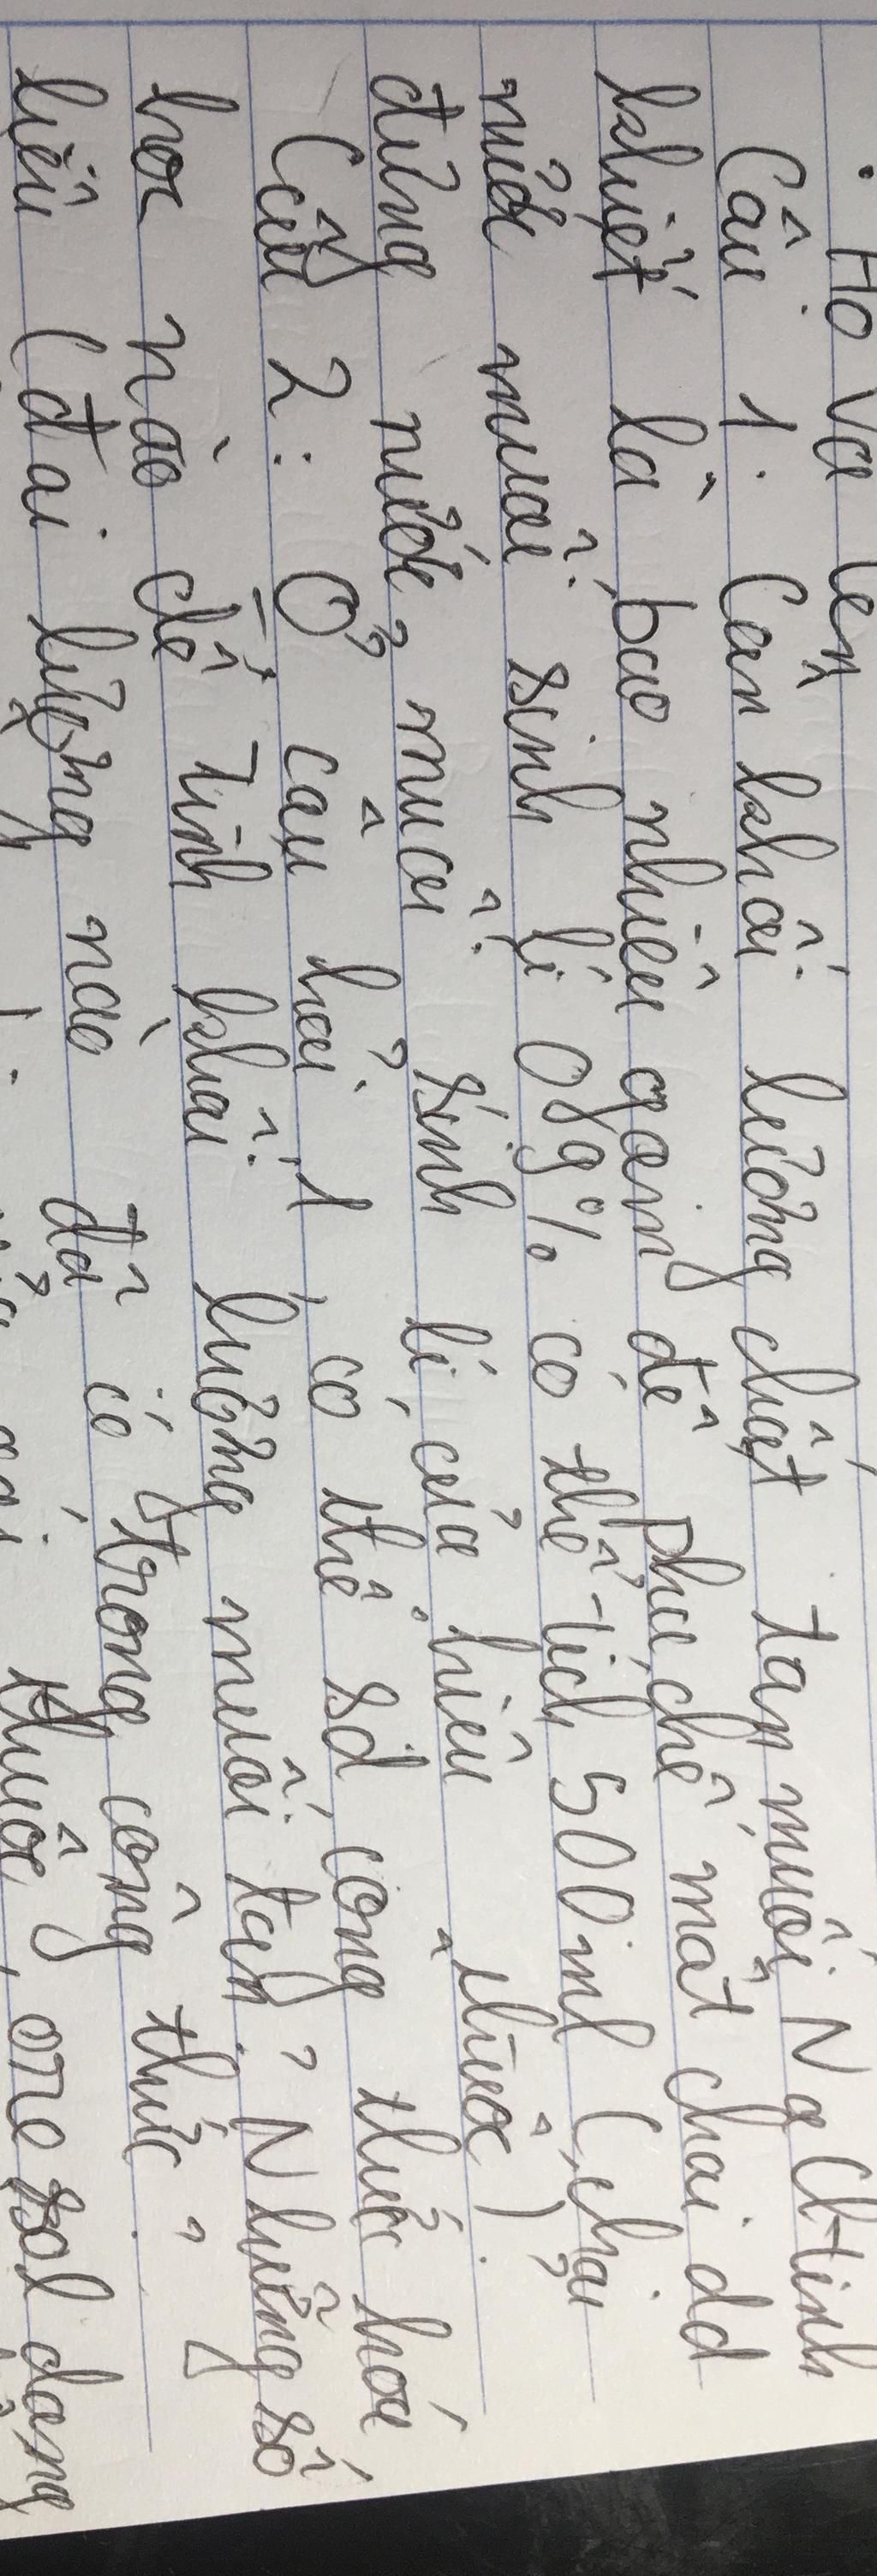 Họ và tên
Câu 1: Cần khối lượng chất tan muối NaCl tinh
khiết là bao nhiêu gam để pha chế một chai dd
nước muối sinh lí 0,9% có thể tích 500ml (chai
đựng nước muối sinh lí của hiệu thuốc).
Câu 2: Ở câu hỏi 1, có thể sd công thức hoá
học nào để tính khối lượng muối tan? Những số
liệu (đại lượng nào đã có trong công thức?
thuốc oresol dạng